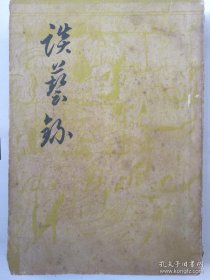 談藝錄
孔夫子旧书网